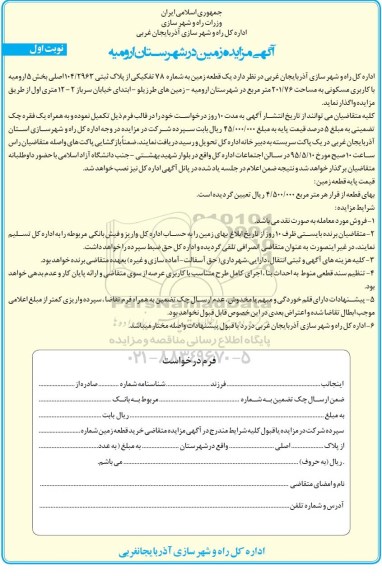 جمهوری اسلامی ایران
وزارت راه و شهر سازی
اداره کل راه و شهر سازی آذربایجان غربی
نوبت اول
آگهی مزایده زمین در شهرستان ارومیه
اداره کل راه و شهر سازی آذربایجان غربی در نظر دارد یک قطعه زمین به شماره ۷۸ تفکیکی از پلاک ثبتی ۱۰۴/۲۹۶۳ اصلی بخش ۵ ارومیه
با کاربری مسکونی به مساحت ۲۰۱/۷۶ متر مربع در شهرستان ارومیه - زمین های طرزیلو - ابتدای خیابان سرباز ۲ - ۱۲ متری اول از طریق
مزایده واگذار نماید.
کلیه متقاضیان می توانند از تاریخ انتشار آگهی به مدت ۱۰ روز درخواست خود را در قالب فرم ذیل تکمیل نموده و به همراه یک فقره چک
تضمینی به مبلغ ۵ درصد قیمت پایه به مبلغ ۴۵/۰۰۰/۰۰۰ ریال بابت سپرده شرکت در مزایده در وجه اداره کل راه و شهرسازی استان
آذربایجان غربی در یک پاکت سربسته به دبیرخانه اداره کل تحویل و رسید دریافت نمایند. ضمناً بازگشایی پاکت های واصله متقاضیان راس
ساعت ۱۰ صبح مورخ ۹۵/۵/۱۰ در سالن اجتماعات اداره کل واقع در بلوار شهید بهشتی - جنب دانشگاه آزاد اسلامی با حضور داوطلبانه
متقاضیان برگزار خواهد شد و نتیجه ضمن اعلام در جلسه یاد شده در پانل آگهی اداره کل نیز نصب خواهد شد.
قیمت پایه قطعه زمین:
بهای قطعه از قرار هر متر مربع ۴/۵۰۰/۰۰۰ ریال تعیین گردیده است.
شرایط مزایده:
۱- فروش مورد معامله به صورت نقد می باشد.
۲- متقاضیان برنده بایستی ظرف ۱۰ روز از تاریخ ابلاغ بهای زمین را به حساب اداره کل واریز و فیش بانکی مربوطه را به اداره کل تسلیم
نمایند، در غیر اینصورت به عنوان متقاضی انصرافی تلقی گردیده و اداره کل حق ضبط سپرده را خواهد داشت.
۳- کلیه هزینه های آگهی و ثبتی انتقال، دارایی، شهرداری (حق آسفالت - آماده سازی و غیره) به عهده متقاضی برنده خواهد بود.
۴- تنظیم سند قطعی منوط به احداث بنا، اجرای کامل طرح متناسب با کاربری عرصه از سوی متقاضی و ارائه پایان کار و عدم بدهی خواهد
بود.
۵- پیشنهادات دارای قلم خوردگی و مبهم یا مخدوش، عدم ارسال چک تضمین به همراه فرم تقاضا، سپرده واریزی کمتر از مبلغ اعلامی
موجب ابطال تقاضا شده و اعتراض بعدی در این خصوص قابل قبول نخواهد بود.
۶- اداره کل راه و شهر سازی آذربایجان غربی در رد یا قبول پیشنهادات واصله مختار میباشد.
پایگاه اطلاع رسانی مناقصه و مزایده
۰۲۱-۸۸۳۴۹۶۷۰-۵
فرم درخواست
اینجانب ........ فرزند ........ شناسنامه شماره ........ صادره از ........
ضمن ارسال چک تضمین به شماره ........ مربوط به بانک ........
به مبلغ ........ ریال بابت
سپرده شرکت در مزایده با قبول کلیه شرایط مندرج در آگهی مزایده متقاضی خرید قطعه زمین شماره ........
از پلاک ........ اصلی ........ واقع در شهرستان ........ به مبلغ (به عدد) ........
ریال (به حروف) ........ می باشم.
نام و امضای متقاضی ........
آدرس و شماره تلفن ........
اداره کل راه و شهر سازی آذربایجانغربی